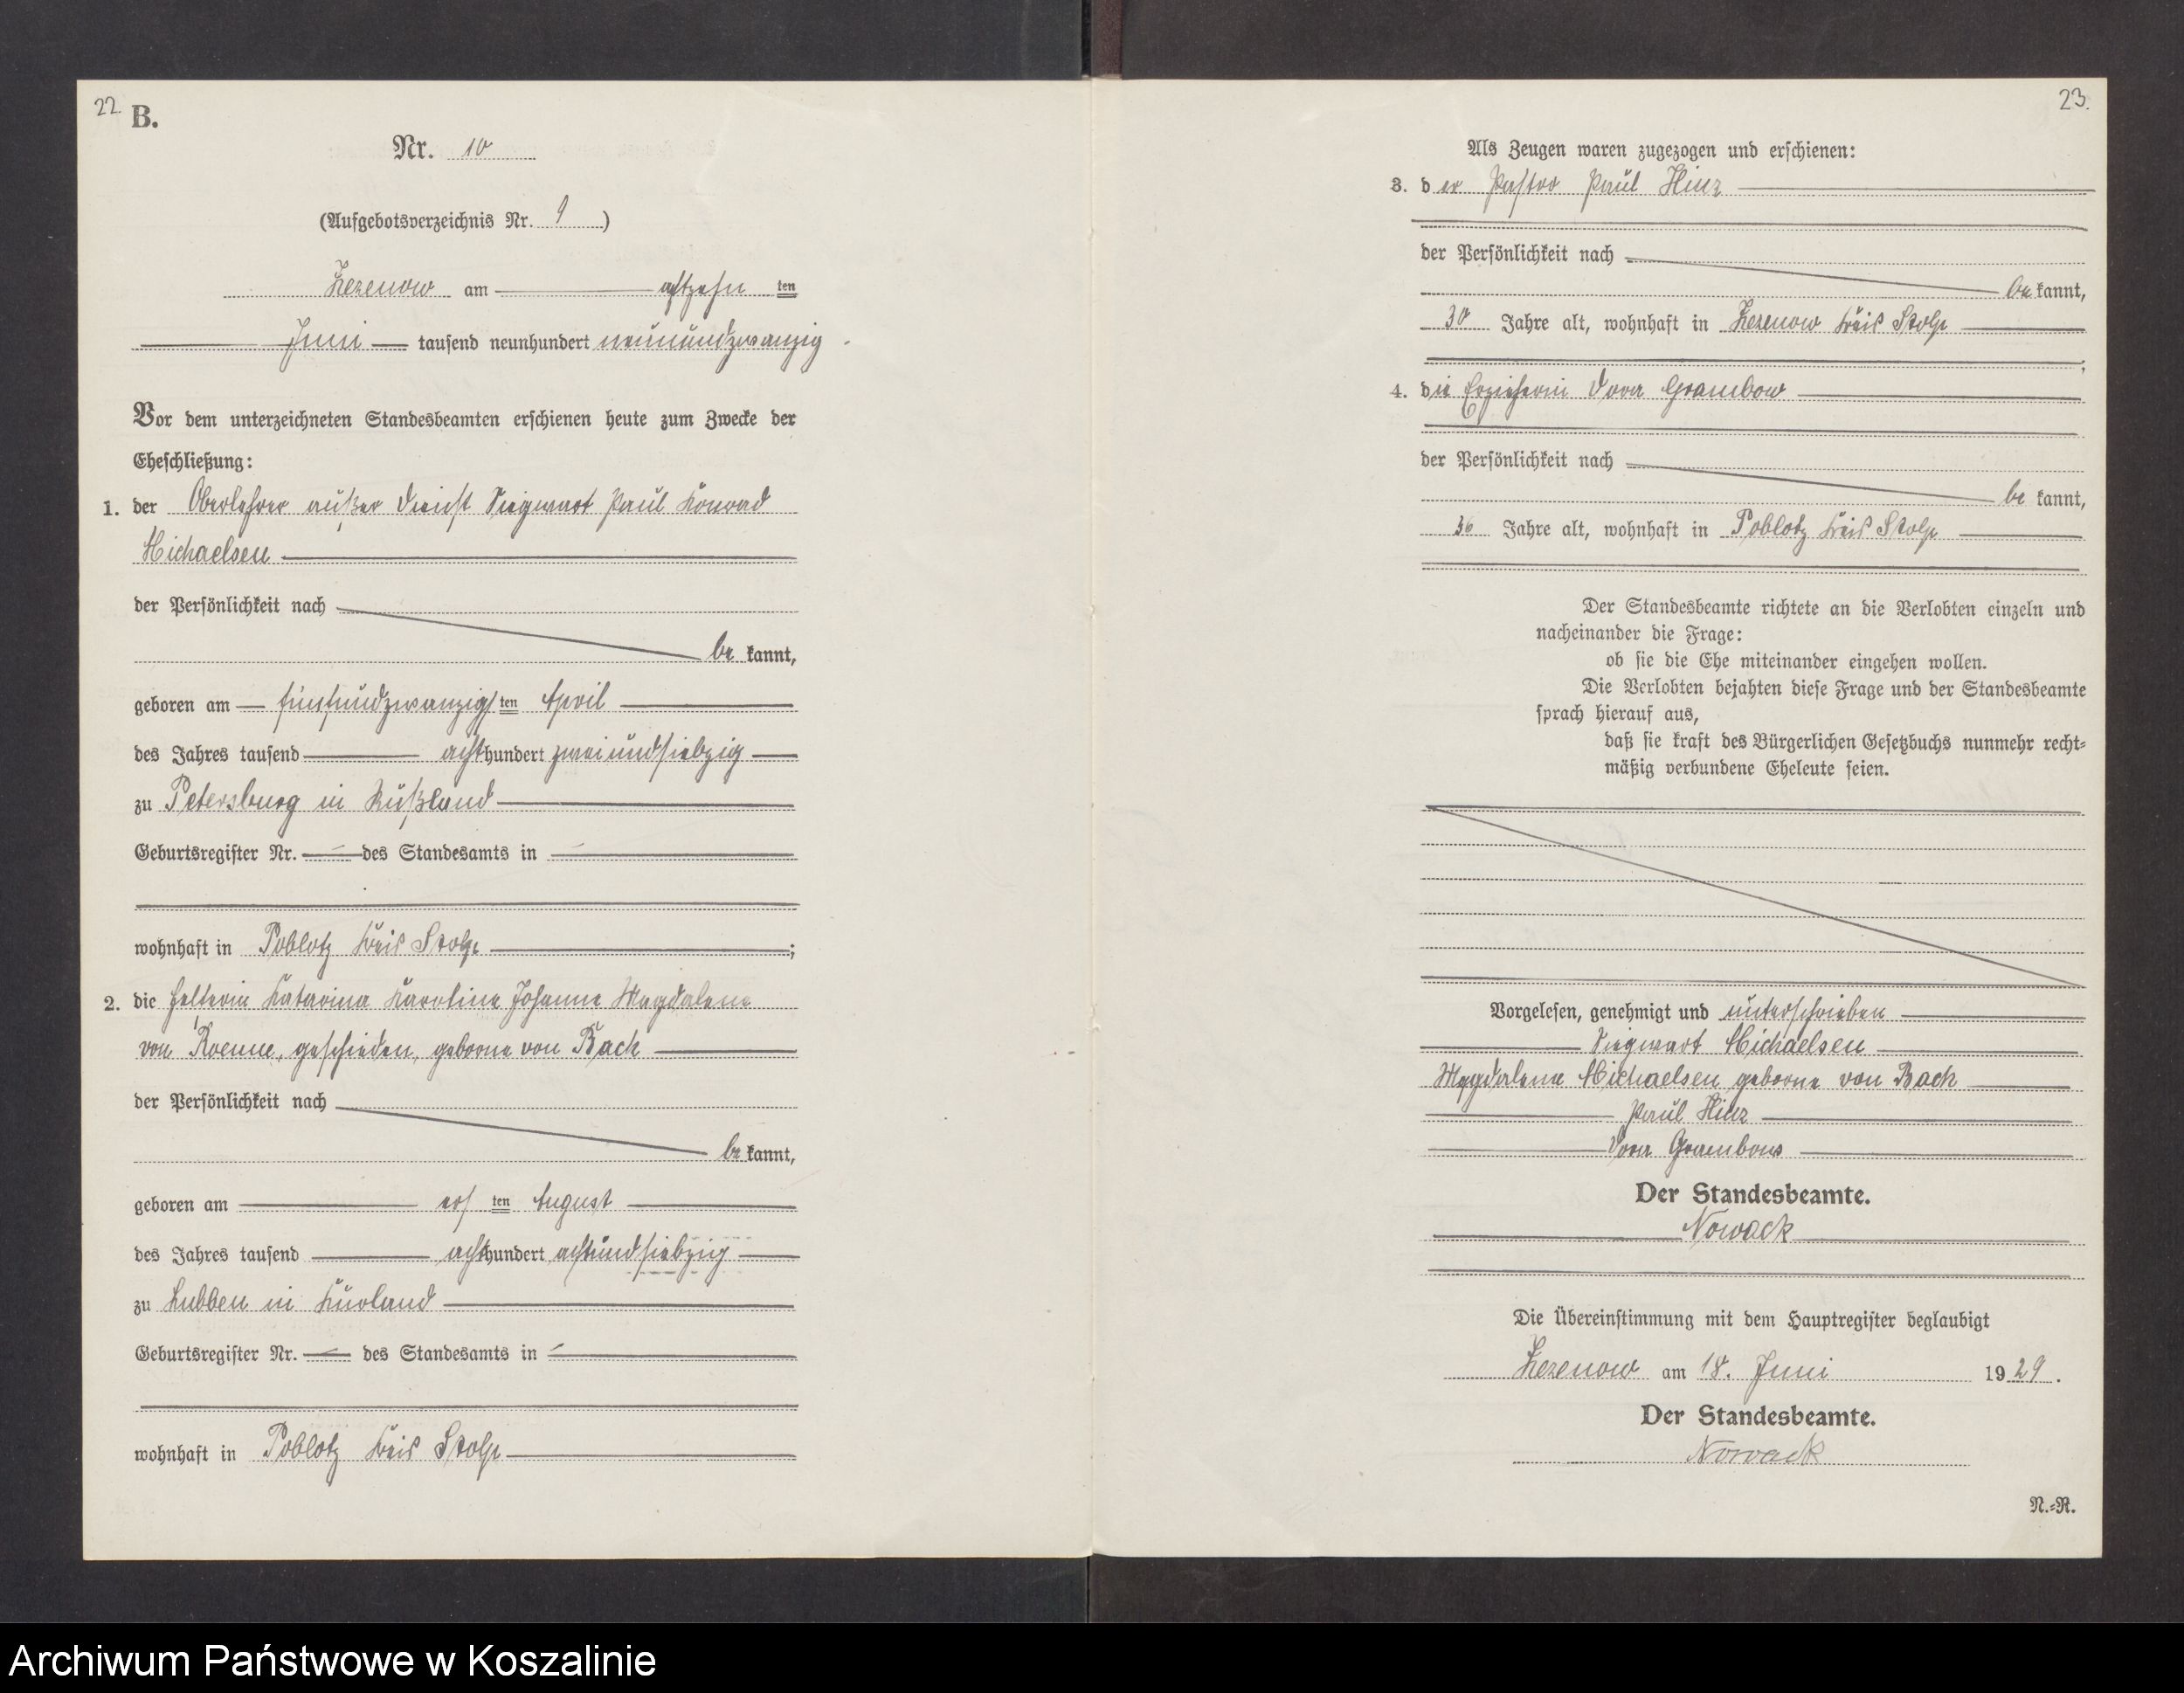 22
B.
Nr. 10
(Aufgebotsverzeichnis Nr. 9)
Zezenow am achtzehn ten
Juni tausend neunhundert neunundzwanzig.
Vor dem unterzeichneten Standesbeamten erschienen heute zum Zwecke der
Eheschließung:
1. der Oberlehrer außer Dienst Siegwart Paul Konrad
Michaelsen
der Persönlichkeit nach
be kannt,
geboren am fünfundzwanzigs ten April
des Jahres tausend achthundert zweiundsiebzig
zu Petersburg in Rußland
Geburtsregister Nr. des Standesamts in
wohnhaft in Poblotz Kreis Stolp;
2. die Katarina Karoline Johanne Magdalene
von Roenne, geschieden, geborne von Bach
der Persönlichkeit nach
be kannt,
geboren am ers ten August
des Jahres tausend achthundert achtundsiebzig
zu Lubben in Kurland
Geburtsregister Nr. des Standesamts in
wohnhaft in Poblotz Kreis Stolp
23.
Als Zeugen waren zugezogen und erschienen:
3. der Pastor Paul Hinz
der Persönlichkeit nach
be kannt,
30 Jahre alt, wohnhaft in Zezenow Kreis Stolp
;
4. die Erzieherin Dora Grambow
der Persönlichkeit nach
be kannt,
36 Jahre alt, wohnhaft in Poblotz Kreis Stolp
Der Standesbeamte richtete an die Verlobten einzeln und
nacheinander die Frage:
ob sie die Ehe miteinander eingehen wollen.
Die Verlobten bejahten diese Frage und der Standesbeamte
sprach hierauf aus,
daß sie kraft des Bürgerlichen Gesetzbuchs nunmehr recht-
mäßig verbundene Eheleute seien.
Vorgelesen, genehmigt und unterschrieben
Siegwart Michaelsen
Magdalene Michaelsen geborne von Bach
Paul Hinz
Dora Grambow
Der Standesbeamte.
Nowack
Die Übereinstimmung mit dem Hauptregister beglaubigt
Zezenow am 18. Juni 1929.
Der Standesbeamte.
Nowack
N.-R.
Archiwum Państwowe w Koszalinie